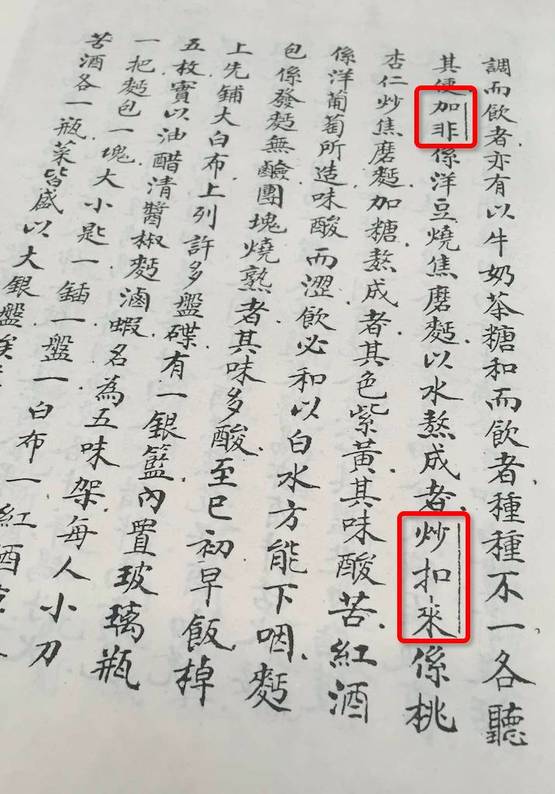 調而飲者亦有以牛奶茶糖和而飲者種種不一各聽
其便加非係洋豆燒焦磨麪以水熬成者炒扣來係桃
杏仁炒焦磨麪加糖熬成者其色紫黃其味酸苦紅酒
係洋葡萄所造味酸而澀飲必和以白水方能下咽麪
包係發麪無鹼團塊燒熟者其味多酸至巳初早飯棹
上先鋪大白布上列許多盤碟有一銀籃內置玻璃瓶
五枚實以油醋清醬椒麪滷蝦名為五味架每人小刀
一把麪包一塊大小匙一鍤一盤一白布一紅酒
苦酒各一瓶菜皆盛以大銀盤挨